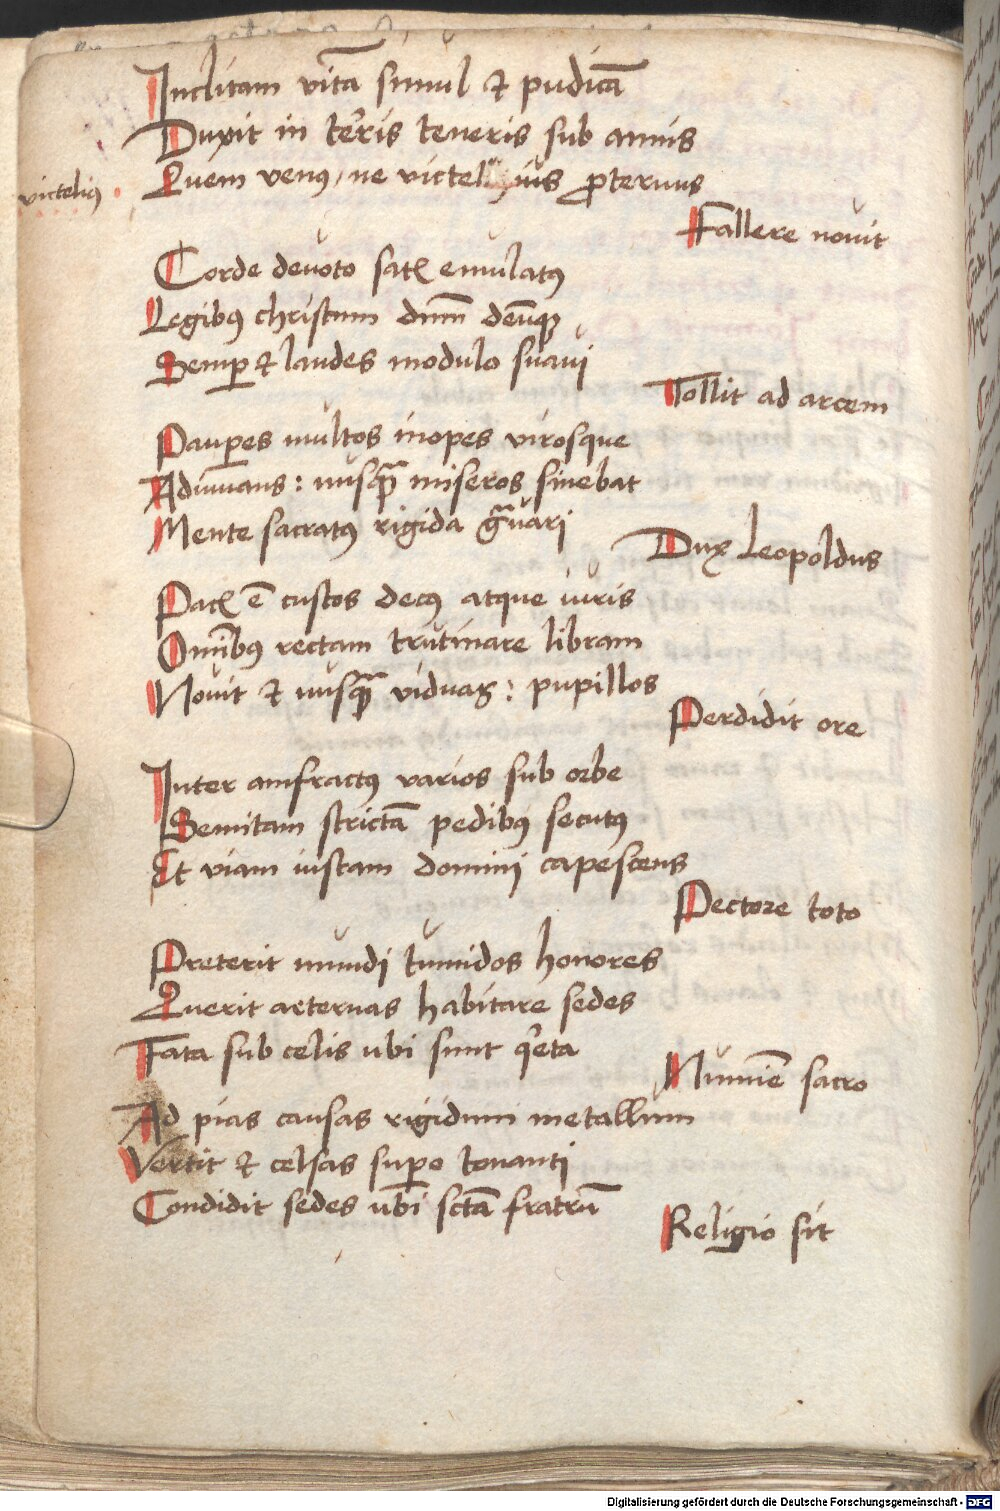 Inclitam vitā simul et pudicā
Duxit in te᷑ris teneris sub annis
Quem venꝰ ne victel ius ꝓteruus
victeliꝰ
Fallere novit
Corde devoto satꝭ emulatꝰ
Legibꝰ christum dn̄m den̄ꝙ
Semꝑ et laudes modulo suavi
Tollit ad arcem
Pauꝑes multos inopes virosque
Adiuuans: nusꝙ̄ miseros sinebat
Mente sacratꝰ rigida gͣuari
Dux Leopoldus
Pacꝭ ē custos decꝰ atque iuris
Om̄ibꝰ rectam trutinare libram
Novit et nusꝙ̄ viduas: pupillos
Perdidit ore
Inter amfractꝰ varios sub orbe
Semitam strictā pedibꝰ secutꝰ
Et viam iustam domini capescens
Pectore toto
Preterit mundi tumidos honores
Querit aeternas habitare sedes
Fata sub celis ubi sunt qͥeta
Numīe sacro
Ad pias causas rigidum metallum
Vertit et celsas suꝑo tonanti
Condidit sedes ubi sctā fratrū
Religio sit
Digitalisierung gefördert durch die Deutsche Forschungsgemeinschaft - DFG